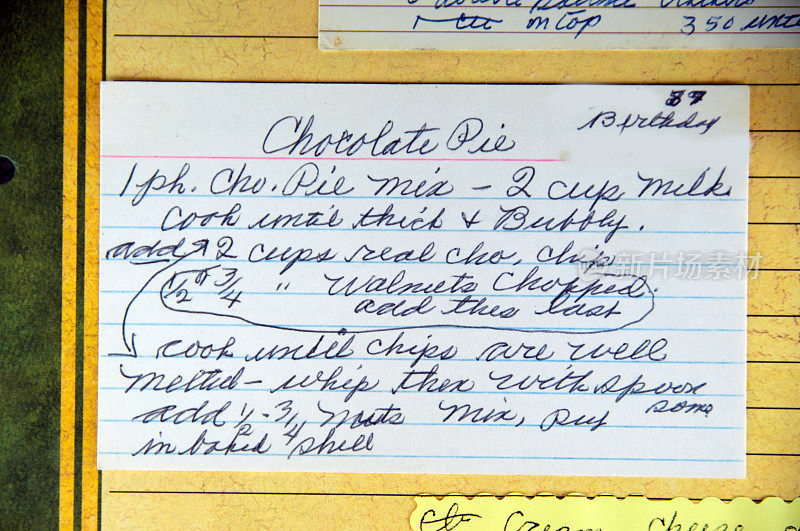 on Top 350 until
87
Birthday
Chocolate Pie
1 pk. Cho. Pie mix - 2 cup milk
cook until thick & Bubbly.
add 2 cups real cho. chip
1/2 or 3/4 " Walnuts Chopped.
add this last
cook until chips are well
melted - whip then with spoon
add 1/2 - 3/4 nuts mix, put some
in baked shell
Cream cheese